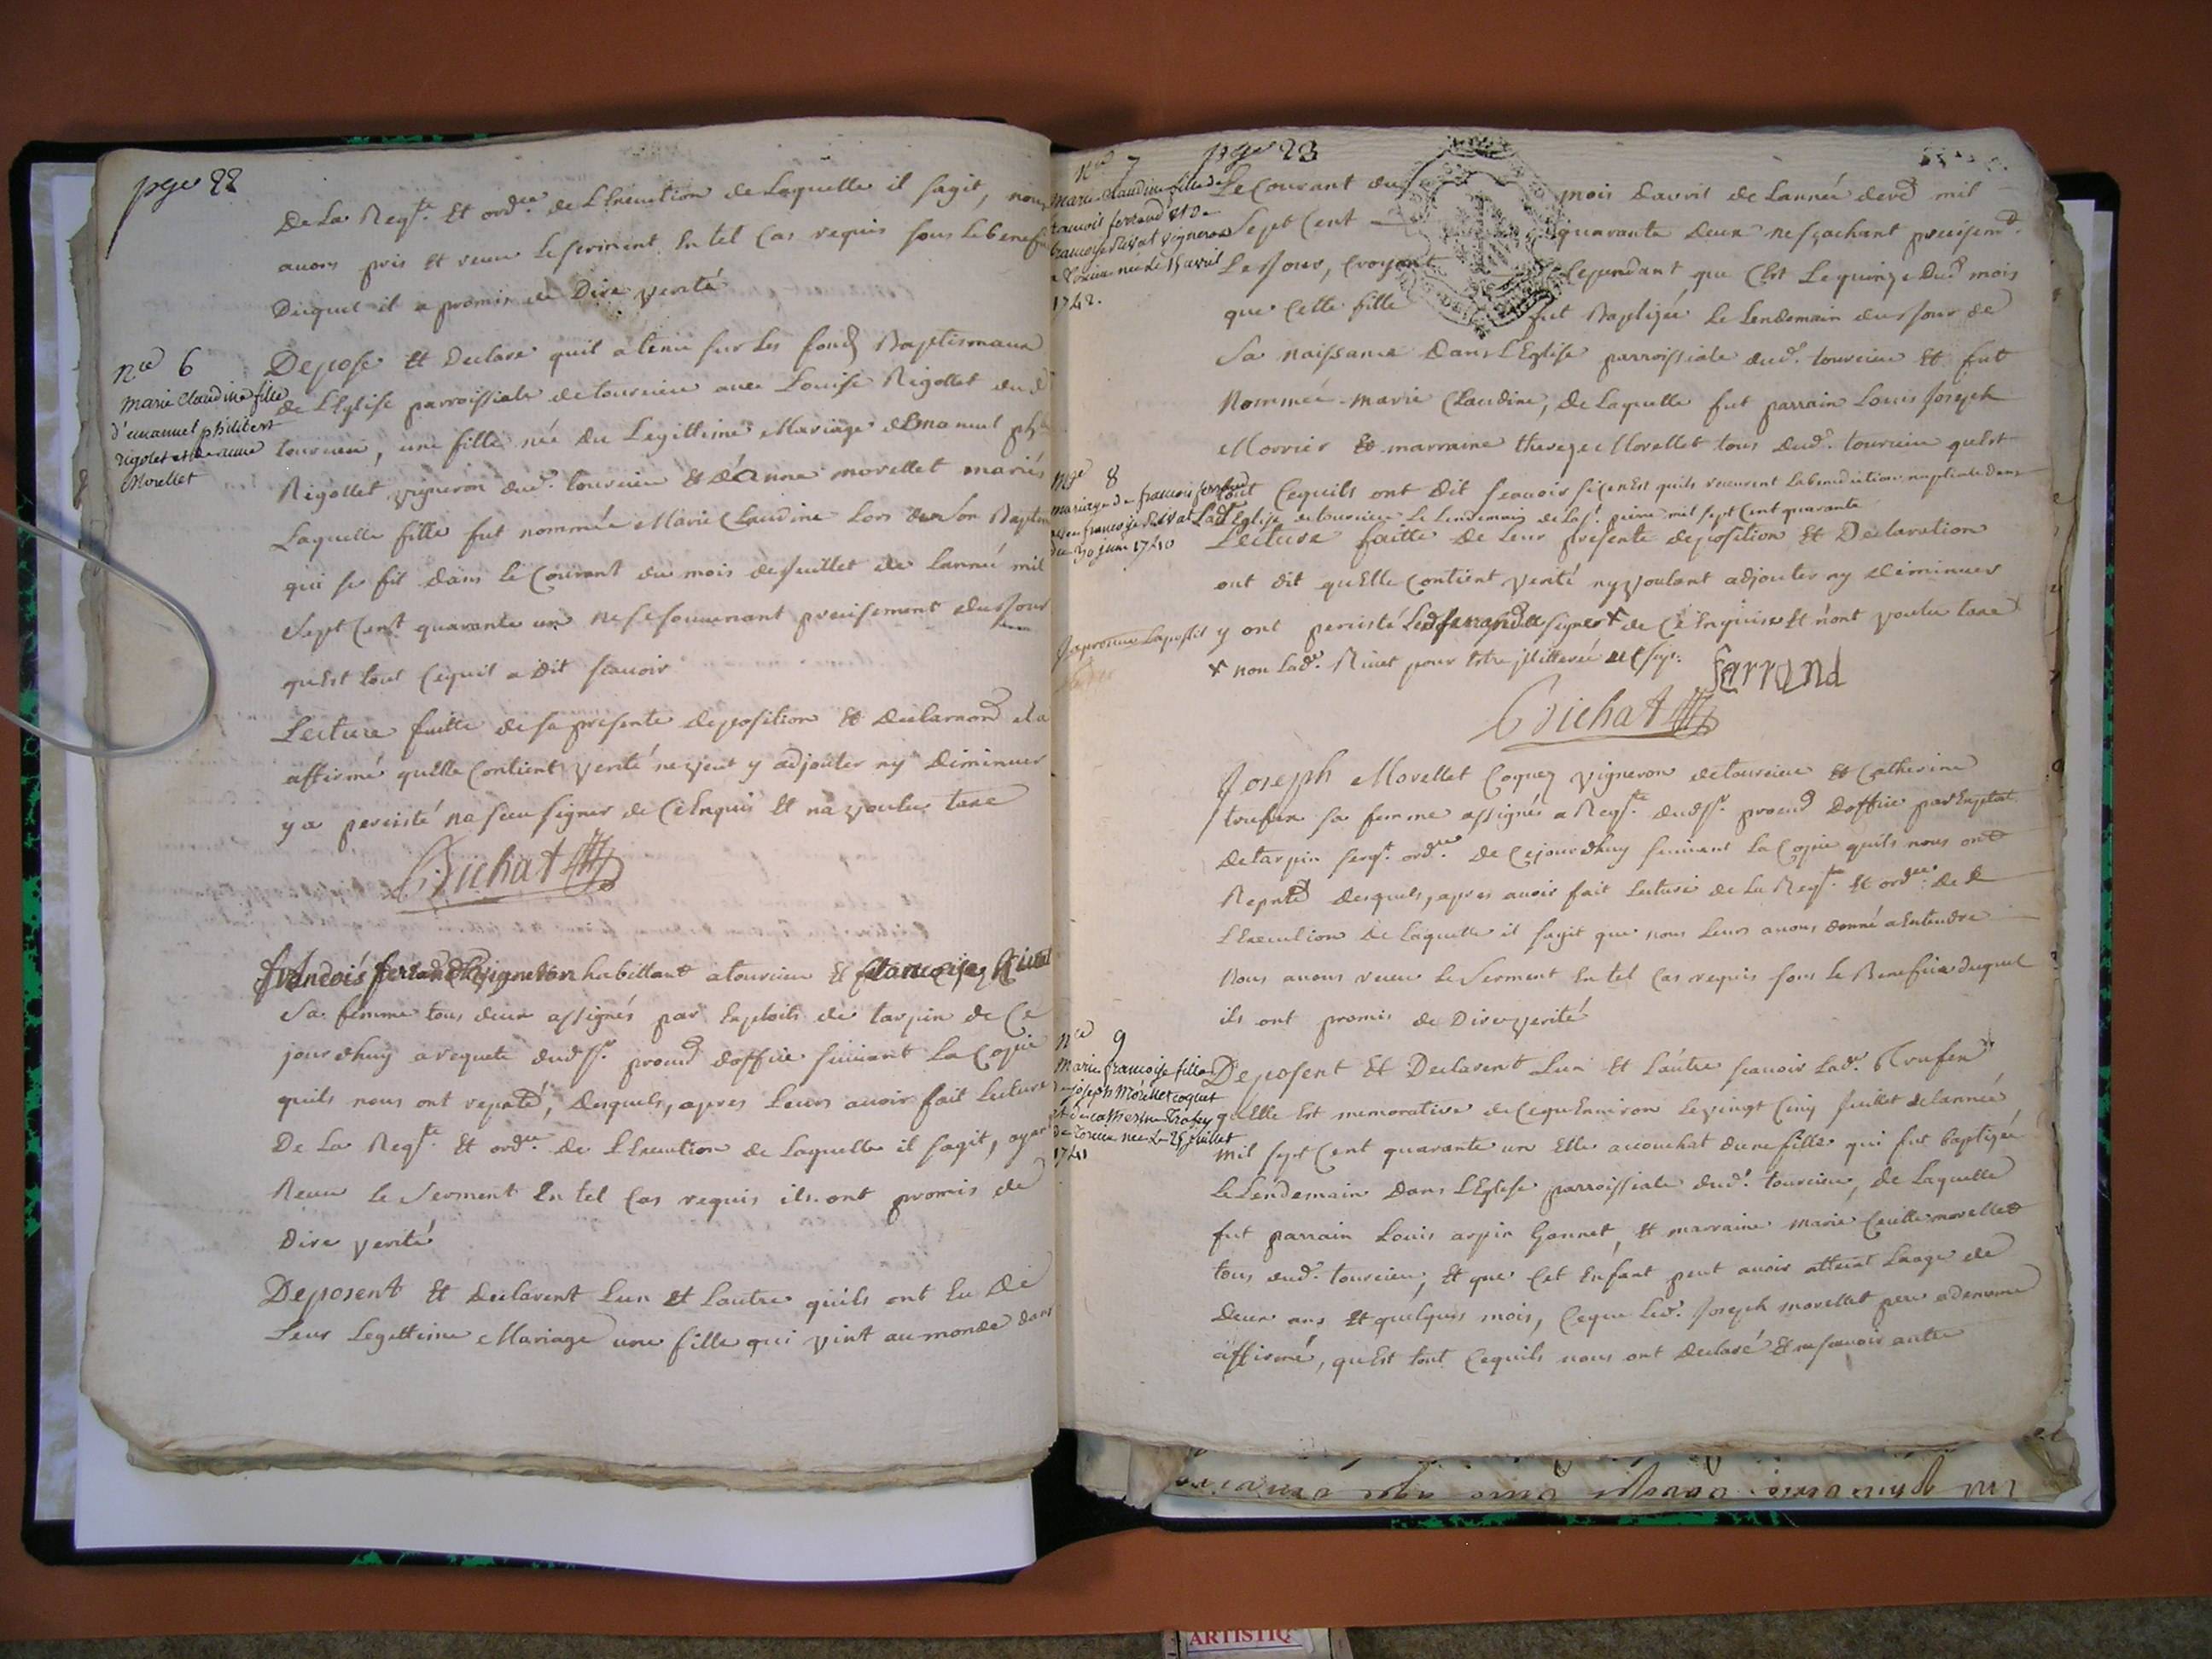 page 22
De La Reqte. Et ordce. de L'Execution de Laquelle il sagit, nous
avons pris Et receu Le serment En tel Cas requis sous Le benefice
Duquel il a promis de Dire verité
nce 6
Marie Claudine fille
d'emanuel philibert
rigolet et de anne
Morellet
Depose Et Declare quil a tenu sur Les fonds Baptismaux
de L'Eglise parroissiale de tourcieu avec Louise Rigollet dud
tourcieu, une fille née du Legittime Mariage d'Emanuel
Rigollet vigneron dud. tourcieu Et d'anne morellet mariés
Laquelle fille fut nommée Marie Claudine Lors de son Baptême
qui se fit dans le Courant du mois de Juillet de Lanné mil
Sept Cent quarante un ne se souvenant precisement du Jour
qu'Est tout Cequil a dit scavoir
Lecture faitte de sa presente deposition Et declaraond. et a
affirmé qu'Elle Contient verité ne veut y adjouter ny diminuer
y a percisté na sceu signer de Ce Enquis Et na voulu taxe
Bichat
françois ferrand vigneron habittant a tourcieu Et françoise Rivat
Sa femme tous deux assignés par Exploits de tarpin de Ce
jourdhuy a requete dudsr. procurd d'office suivant La Copie
quils nous ont repnté, desquels, apres Leurs avoir fait Lecture
De La Reqte. Et ordce. de L'Execution de Laquelle il sagit, ayant
Receu le Serment En tel Cas requis ils ont promis de
Dire verité
Deposent Et declarent Lun Et Lautre quils ont Eu De
Leur Legittime Mariage une fille qui vint au monde dans
page 23
nce 7
Marie claudine fille de
francois ferrand et de
francoise Rivat vigneron
a Torcieu née le 15 avril
1742.
Le Courant du mois davril de Lannée derd mil
Sept Cent quarante deux ne sçachant precisemt.
Le Jour, croyant Cependant que C'Est Le quinze Dud mois
que Cette fille fut Baptizée Le Lendemain du Jour de
Sa naissance dans L'Eglise parroissiale dud. tourcieu Et fut
Nommée Marie Claudine, de Laquelle fut parrain Louis Joseph
Morrier Et marraine thereze Morellet tous dud. tourcieu qu'Est
mge 8
mariage de francois ferrand
avec francoise Rivat
du 30 juin 1740
tout Cequils ont dit scavoir si Cen'Est quils receurent La benediction nuptiale dans
Lad. Eglise de tourcieu Le Lendemain de La St. pierre mil sept Cent quarante
Lecture faitte de Leur presente deposition Et declaration
ont dit qu'Elle Contient verité ny voulant adjouter ny diminuer
y ont percisté Led ferrand a signé x de Ce Enquis Et n'ont voulu taxe
Japrouve Lapostil
x non Lade. Rivat pour Estre illitterée
ferrand
Bichat
Joseph Morellet Coquez vigneron de tourcieu Et Catherine
trufen sa femme assignés a Reqte. dudsr. procurd D'office par Exploit
de tarpin sergt. ordre. de Cejourdhuy suivant La Copie quils nous ont
Repntd desquels, apres avoir fait lecture de La Reqte. Et ordce. de
L'Execution de Laquelle il sagit que nous Leurs avons donné a Entendre
Nous avons receu le Serment En tel Cas requis sous le Benefice duquel
ils ont promis de Dire verité
nce 9
Marie francoise fille
de joseph Morellet coquet
et de catherine Trafey
de Torcieu née Le 25 juillet
1741
Deposent Et Declarent Lun Et Lautre scavoir Lade. Trufen
quElle Est memorative de Ce qu'Environ Le vingt Cinq Juillet de Lannée
mil sept Cent quarante un Elle accouchat dune fille qui fut baptizée
Le Lendemain dans L'Eglise parroissiale dud. tourcieu, de Laquelle
fut parrain Louis arpin Gannet, Et marraine Marie Ceuille morellet
tous dud. tourcieu, Et que Cet Enfant peut avoir atteint Laage de
deux ans Et quelques mois, Ceque Led. Joseph morellet pere a de meme
affirmé, qu'Est tout Cequils nous ont declaré Et ne scavoir autre
ARTISTIQ